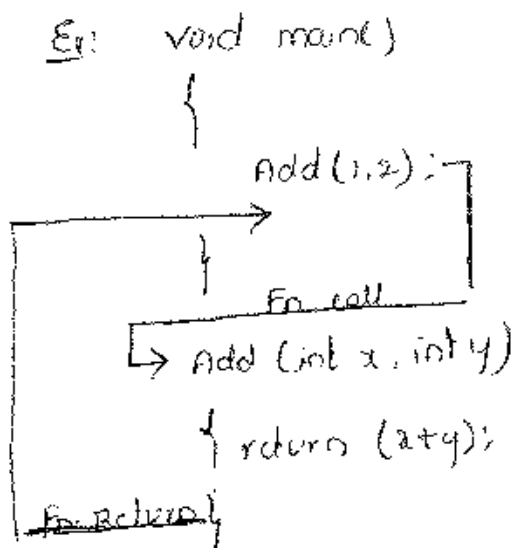 Ex: void main()
{
Add(1,2);
}
Fn call
Add (int x, int y)
{ return (x+y);
Fn Return }